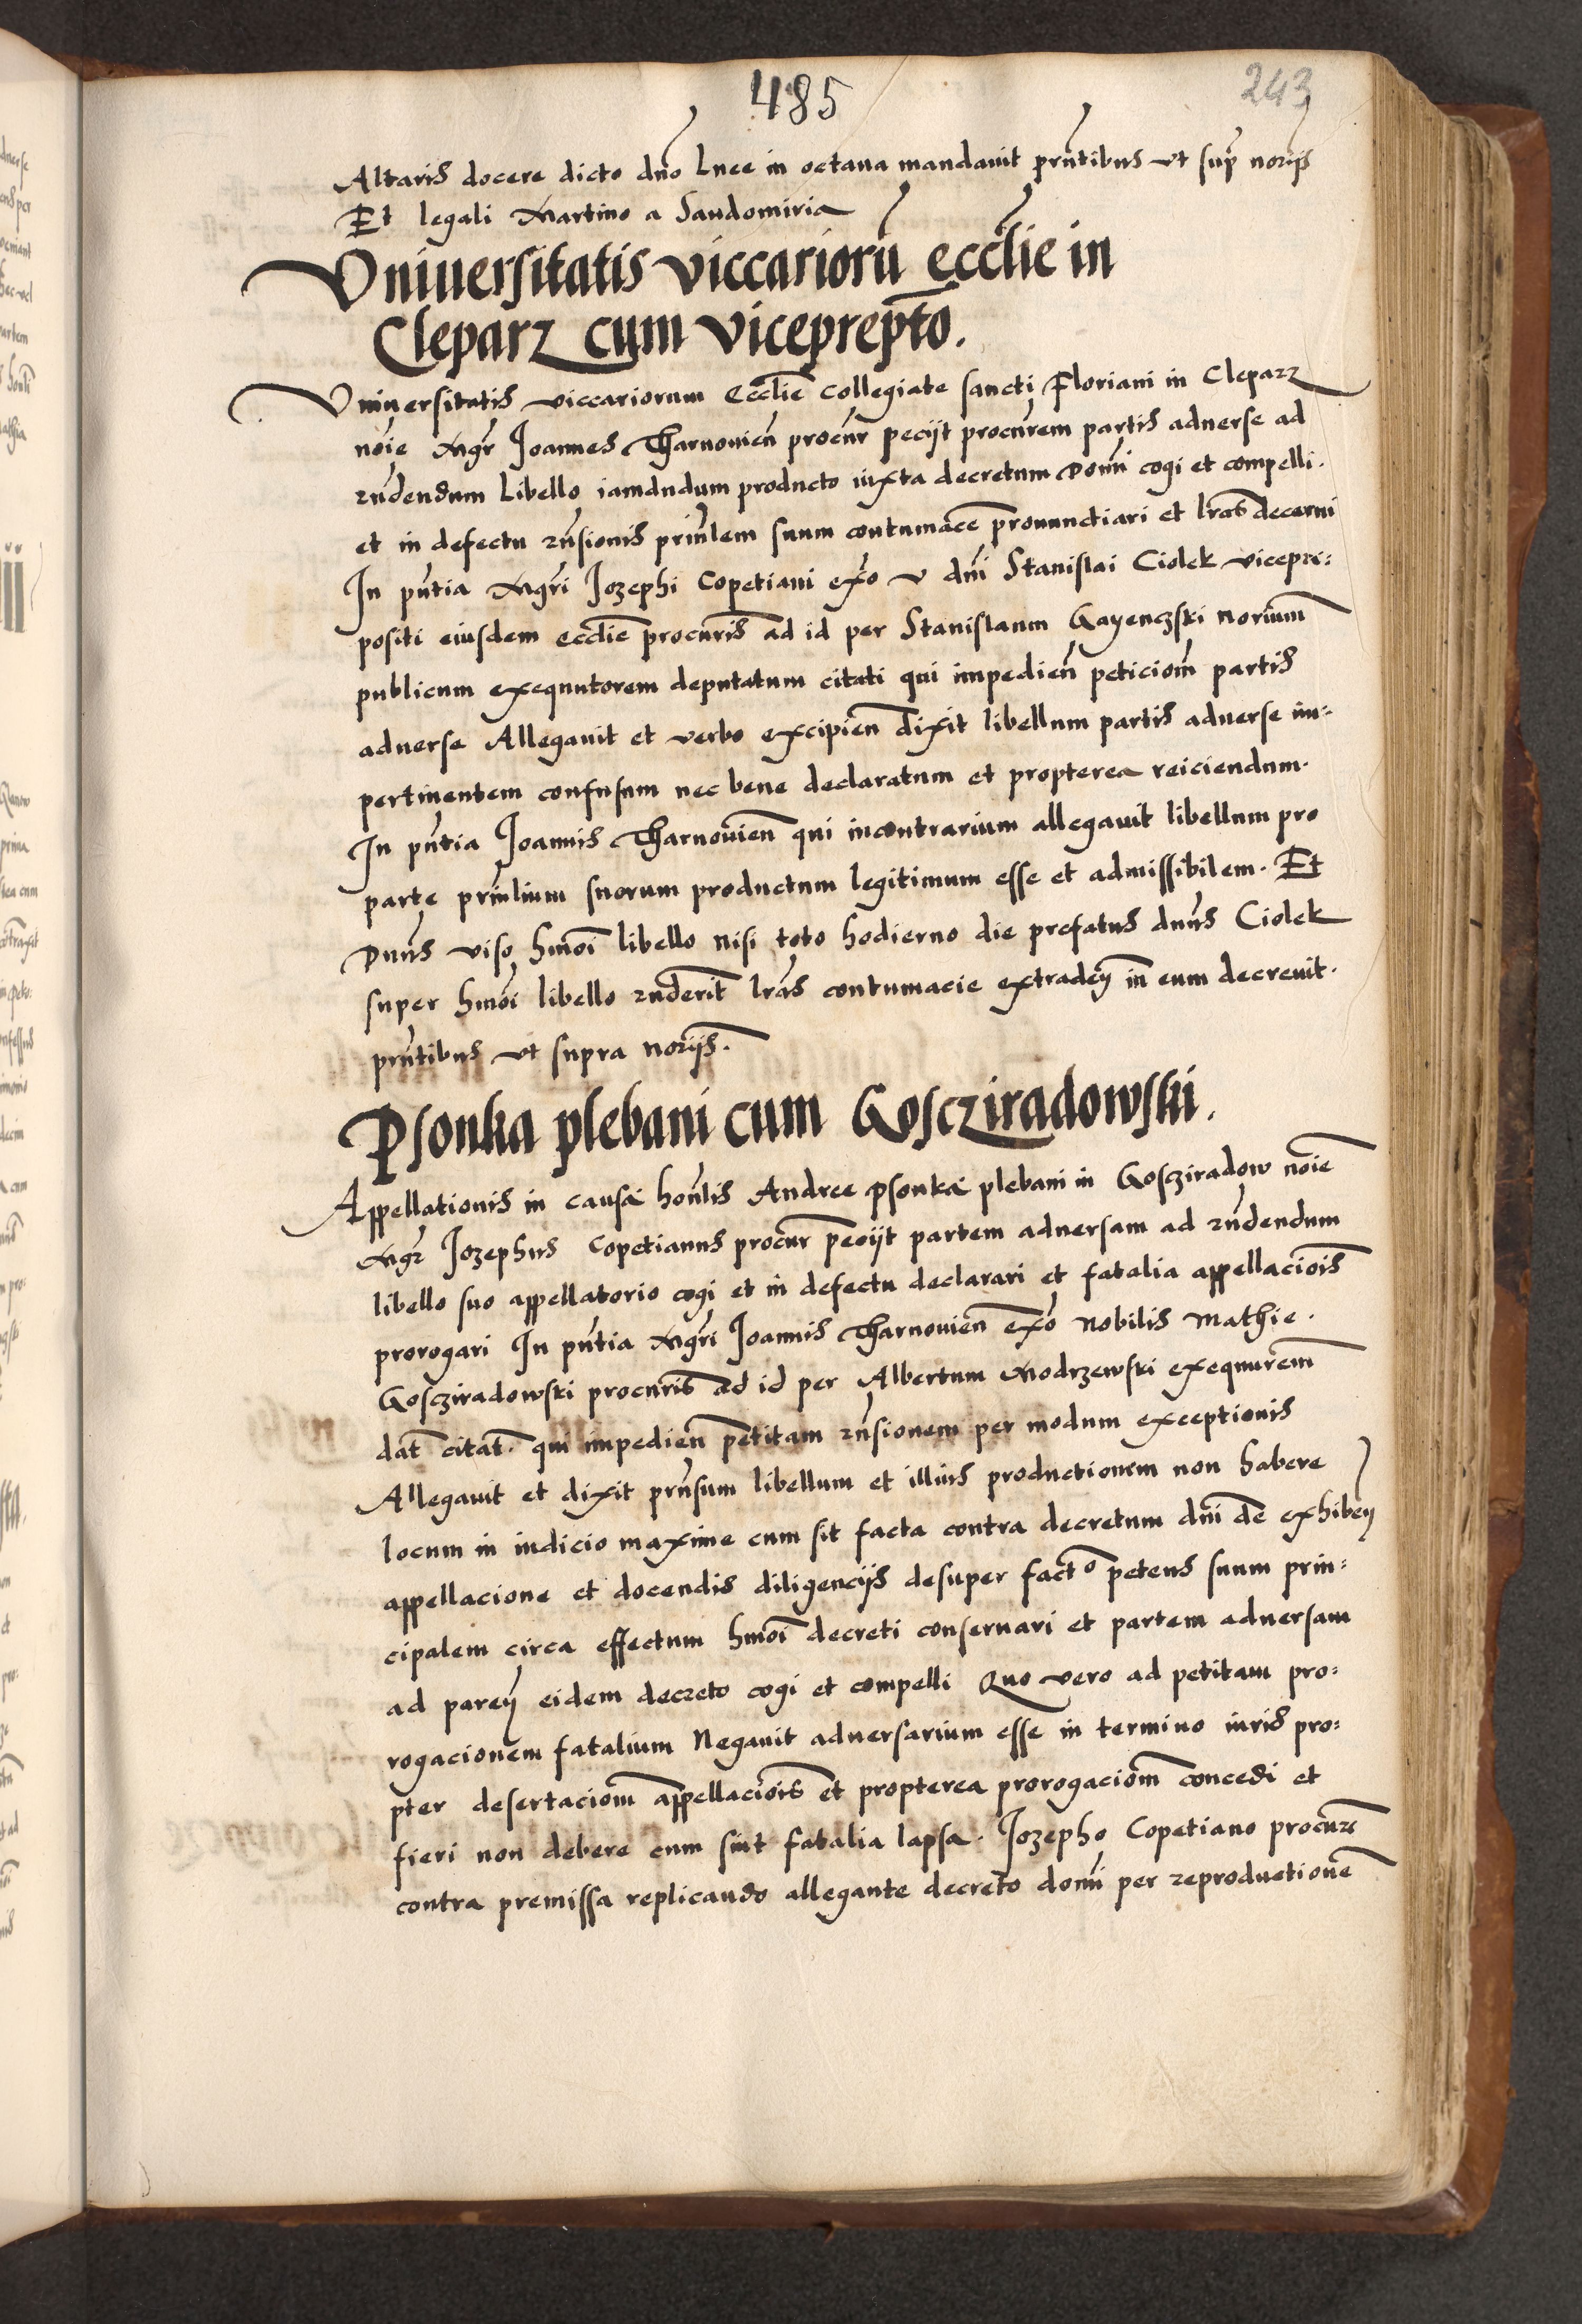 485
243
Altaris docere dicto dno Luce in octava mandavit pñtibus ut sup norijs
Et legali Martino a Sandomiria
Universitatis viccariorũ ecclie in
Cleparz cum viceprepto.
Universitatis viccariorum Ecclie Collegiate sancti Floriani in Cleparz
noie Mgr Joannes Tharnovien procur pecijt procurem partis adverse ad
rñdendum Libello iamdudum producto iuxta decretum Domi cogi et compelli.
et in defectu rñsionis prinlem suum contumace pronunctiari et lras decerni
In pñtia Mgri Jozephi Copetiani exo v dni Stanislai Ciolek vicepri:
positi eiusdem ecclie procuris ad id per Stanislaum Gayenczski norium
publicum exequutorem deputatum citati qui impedien peticiom partis
adverse Allegavit et verbo excipien dixit libellum partis adverse im:
pertinentem confusum nec bene declaratum et propterea reiciendum.
In pñtia Joannis Tharnovien qui incontrarium allegavit libellum pro
parte prinlium suorum productum legitimum esse et admissibilem. Et
Dnus viso hmoi libello nisi toto hodierno die prefatus dnus Ciolek
super hmoi libello rñderit lras contumacie extradey in eum decrevit.
pñtibus ut supra norijs.
Psonka plebani cum Goscziradowski.
Appellationis in causa honlis Andree Psonka plebani in Goscziradow noie
Mgr Jozephus Copetianus procur pecijt partem adversam ad rñdendum
libello suo appellatorio cogi et in defectu declarari et fatalia appellaciois
prorogari In pñtia Mgri Joannis Tharnovien exo Nobilis Mathie.
Goscziradowski procuris ad id per Albertum Modrzewski exequurem
dat citat. qui impedien petitam rñsionem per modum exceptionis
Allegavit et dixit prnsum libellum et illius productionem non habere
locum in iudicio maxime cum sit facta contra decretum dni de exhibey
appellacione et docendis diligencijs desuper facto petens suum prin:
cipalem circa effectum hmoi decreti conservari et partem adversam
ad parey eidem decreto cogi et compelli Quo vero ad petitam pro:
rogacionem fatalium Negavit adversarium esse in termino iuris pro:
pter desertaciom appellaciois et propterea prorogaciom concedi et
fieri non debere cum sint fatalia lapsa. Jozepho Copetiano procure
contra premissa replicando allegante decreto domi per reproductione